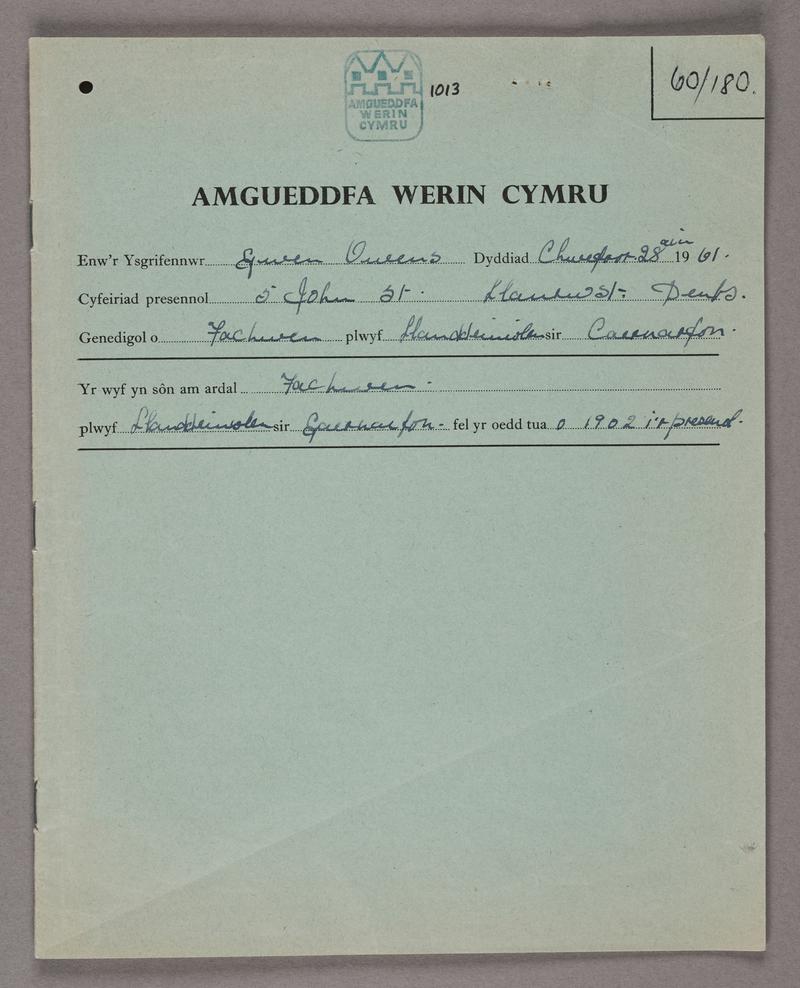 AMGUEDDFA
WERIN
CYMRU
1013
60/180.
AMGUEDDFA WERIN CYMRU
Enw'r Ysgrifennwr Gwen Owens Dyddiad Chwefror 28ain 1961.
Cyfeiriad presennol 5 John St. Llanrwst. Denbs.
Genedigol o Fachwen plwyf Llanddeiniolen sir Caernarfon.
Yr wyf yn sôn am ardal Fachwen.
plwyf Llanddeiniolen sir Gaernarfon- fel yr oedd tua o 1902 i'r presenol.